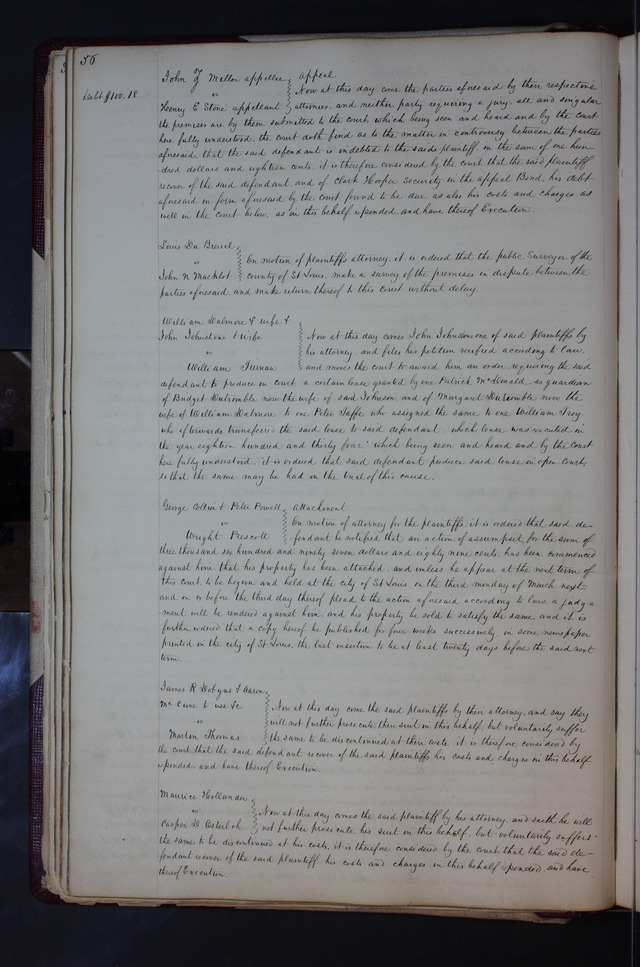 56
Debt $100.18
John Z Miller appellee } Appeal
vs } Now at this day come the parties aforesaid by their respective
Henry E Stone appellant } attornies, and neither party requiring a jury, all and singular
the premises are by them submitted to the court, which being seen and heard and by the court
here fully understood, the court doth find as to the matter in controversy between the parties
aforesaid, that the said defendant is indebted to the said plaintiff in the sum of one hun-
dred dollars and eighteen cents, it is therefore considered by the court that the said plaintiff
recover of the said defendant, and of Clark Hooper security in the appeal Bond, his debt
aforesaid in form aforesaid by the court found to be due as also his costs and charges as
well in the court below, as in this behalf expended and have thereof Execution.
Louis Du Breuil }
vs } On motion of plaintiffs attorney, it is ordered that the public Surveyor of the
John N Macklot } County of St Louis, make a survey of the premises in dispute between the
parties aforesaid, and make return thereof to this court without delay.
William Dalmore & wife &
John Johnstone & wife } Now at this day comes John Johnson one of said plaintiffs by
vs } his attorney, and files his petition verified according to law,
William Tiernan } and moves the court to award him an order requiring the said
defendant to produce in court a certain lease granted by one Patrick McDonald as guardian
of Bridget Dutromble now the wife of said Johnson, and of Margaret Dutromble now the
wife of William Dalmore to one Peter Taffe who assigned the same to one William Troy
who afterwards transferred the said lease to said defendant which lease was executed in
the year eighteen hundred and thirty four: which being seen and heard and by the court
here fully understood, it is ordered that said defendant produce said lease in open court,
so that the same may be had on the trial of this cause.
George Collier & Peter Powell } Attachment
vs } On motion of attorney for the plaintiffs, it is ordered that said de-
Wright Prescott } fendant be notified that an action of assumpsit for the sum of
three thousand six hundred and ninety seven dollars and eighty nine cents, has been commenced
against him that his property has been attached, and unless he appear at the next term of
this court to be begun and held at the city of St Louis, on the third monday of March next
and on or before the third day thereof plead to the action aforesaid according to law, a judg=
ment will be rendered against him, and his property be sold to satisfy the same, and it is
further ordered that a copy hereof be published for four weeks successively in some newspaper
printed in the city of St Louis, the last insertion to be at least twenty days before the said next
term.
James R Dobyns & Aaron
McCune to use &c } Now at this day come the said plaintiffs by their attorney, and say they
vs } will not further prosecute their suit in this behalf, but voluntarily suffer
Martin Thomas } the same to be discontinued at their costs, it is therefore considered by
the court, that the said defendant recover of the said plaintiffs his costs and charges in this behalf
expended and have thereof Execution.
Maurice Hollander
vs } Now at this day comes the said plaintiff by his attorney, and saith he will
Casper D Osterloh } not further prosecute his suit in this behalf, but voluntarily suffers
the same to be discontinued at his costs, it is therefore considered by the court that the said de-
fendant recover of the said plaintiff his costs and charges in this behalf expended and have
thereof Execution.